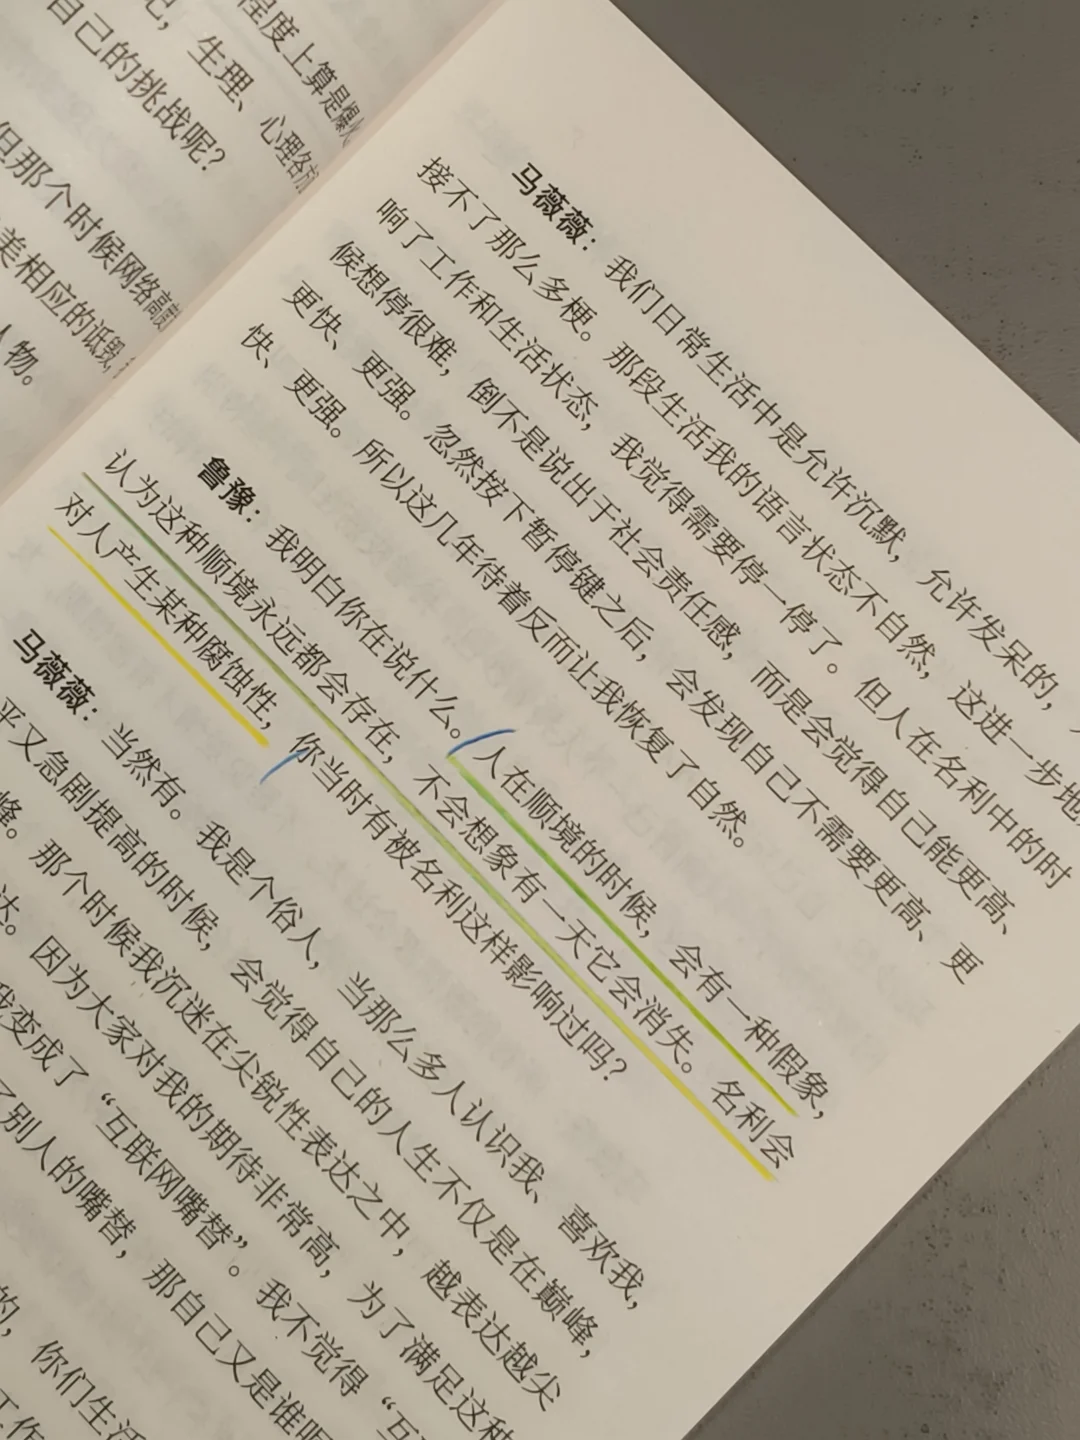 程度上算是
己，生理、心理各方
自己的挑战呢？
但那个时候网络高度
美相应的诋毁，
人物。
马薇薇：我们日常生活中是允许沉默，允许发呆的，
接不了那么多梗。那段生活我的语言状态不自然，这进一步地
响了工作和生活状态，我觉得需要停一停了。但人在名利中的时
候想停很难，倒不是说出于社会责任感，而是会觉得自己能更高、
更快、更强。忽然按下暂停键之后，会发现自己不需要更高、更
快、更强。所以这几年待着反而让我恢复了自然。
鲁豫：我明白你在说什么。人在顺境的时候，会有一种假象，
认为这种顺境永远都会存在，不会想象有一天它会消失。名利会
对人产生某种腐蚀性，你当时有被名利这样影响过吗？
马薇薇：当然有。我是个俗人，当那么多人认识我、喜欢我，
平又急剧提高的时候，会觉得自己的人生不仅是在巅峰，
峰。那个时候我沉迷在尖锐性表达之中，越表达越尖
达。因为大家对我的期待非常高，为了满足这种
我变成了“互联网嘴替”。我不觉得“互
了别人的嘴替，那自己又是谁呢
的，你们生活
工作